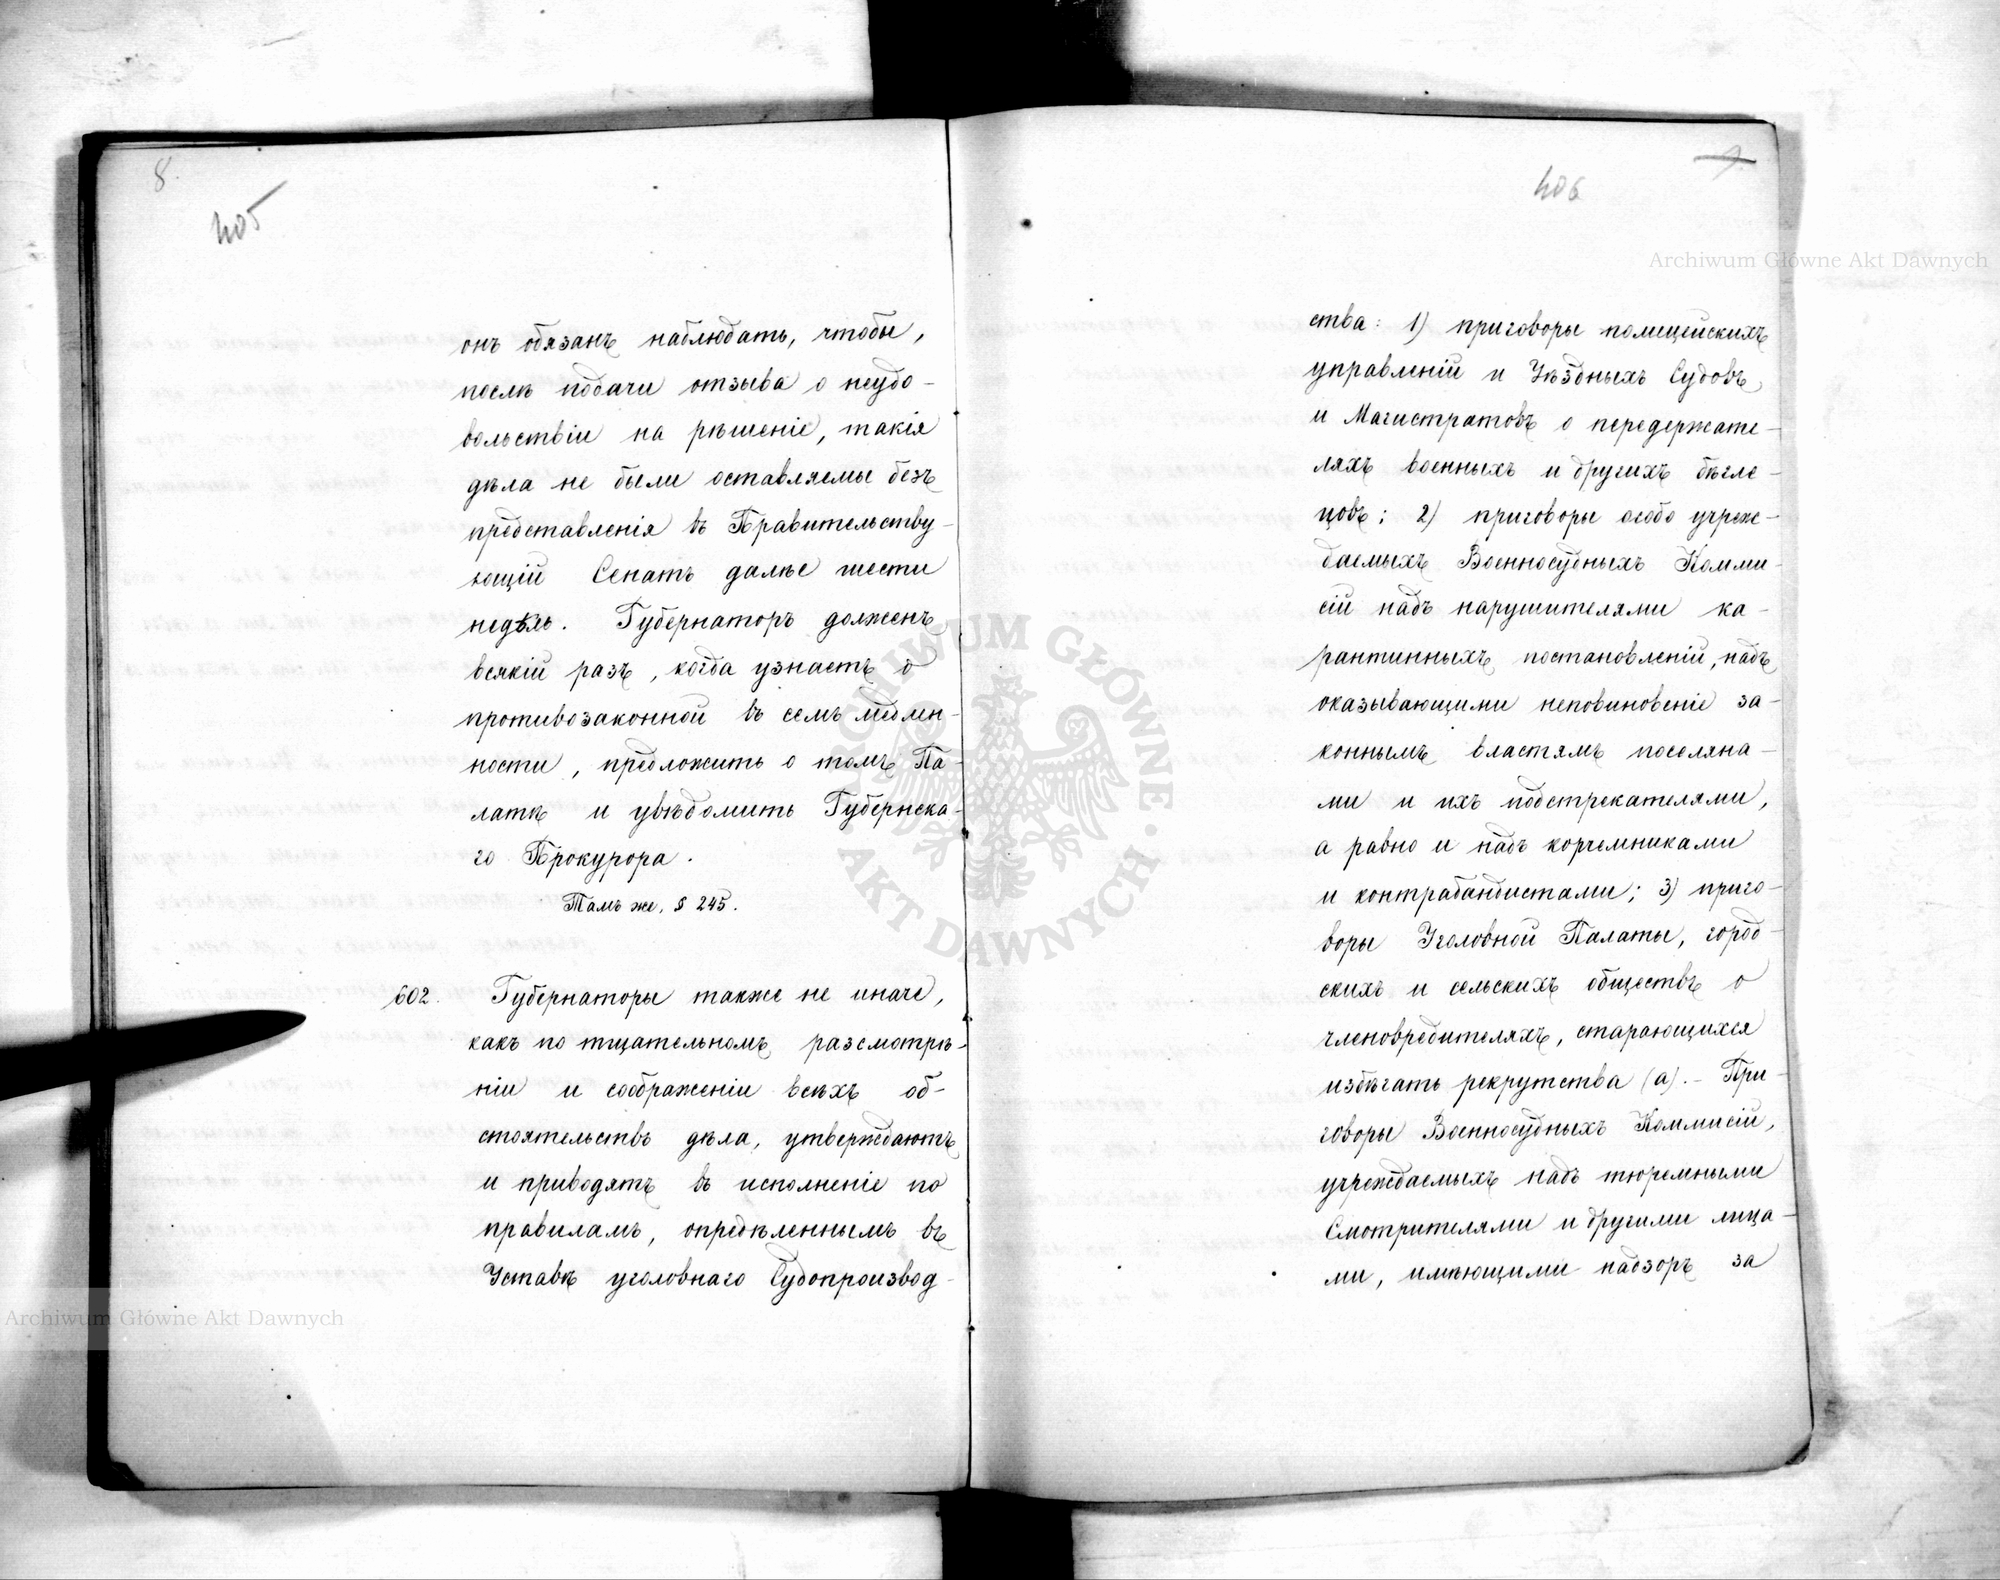 8.
405
онъ обязанъ наблюдать, чтобы,
послѣ подачи отзыва о неудо-
вольствіи на рѣшеніе, такія
дѣла не были оставляемы безъ
представленія въ Правительству-
ющій Сенатъ далѣе шести
недѣль. Губернаторъ долженъ
всякій разъ, когда узнаетъ о
противозаконной въ семъ медлен-
ности, предложить о томъ Па-
латѣ и увѣдомить Губернска-
го Прокурора.
Тамъ же, § 245.
602. Губернаторы также не иначе,
какъ по тщательномъ разсмотрѣ-
ніи и соображеніи всѣхъ об-
стоятельствъ дѣла, утверждаютъ
и приводятъ въ исполненіе по
правиламъ, опредѣленнымъ въ
Уставѣ уголовнаго Судопроизвод-
406
ства: 1) приговоры полицейскихъ
управленій и Уѣздныхъ Судовъ
и Магистратовъ о передержате-
ляхъ военныхъ и другихъ бѣгле-
цовъ; 2) приговоры особо учреж-
даемыхъ Военносудныхъ Комми-
сій надъ нарушителями ка-
рантинныхъ постановленій, надъ
оказывающими неповиновеніе за-
коннымъ властямъ поселяна-
ми и ихъ подстрекателями,
а равно и надъ корчемниками
и контрабандистами; 3) приго-
воры Уголовной Палаты, город-
скихъ и сельскихъ обществъ о
членовредителяхъ, старающихся
избѣгать рекрутства (а). – При-
говоры Военносудныхъ Коммисій,
учреждаемыхъ надъ тюремными
Смотрителями и другими лица-
ми, имѣющими надзоръ за
Archiwum Główne Akt Dawnych
Archiwum Główne Akt Dawnych
ARCHIWUM GŁÓWNE · AKT DAWNYCH ·